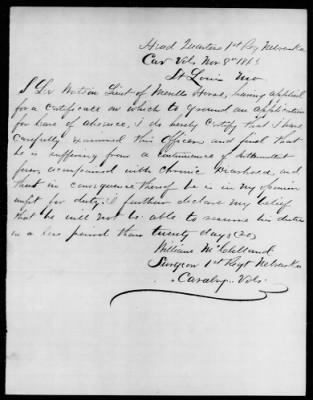 Head Quarters 1st Reg Nebraska
Cav Vols Nov 8th 1863
St Louis Mo
Lieut of having applied
for a certificate on which to ground an application
for leave of absence, I do hereby certify that I have
carefully examined this Officer and find that
he is suffering from a continuence of
fever, accompanied with Chronic Diarhoea, and
that in consequence thereof he is in my opinion
unfit for duty; I further declare my belief
that he will not be able to resume his duties
in a less period than twenty days (20)
William McClelland
Surgeon 1st Regt Nebraska
Cavalry Vols